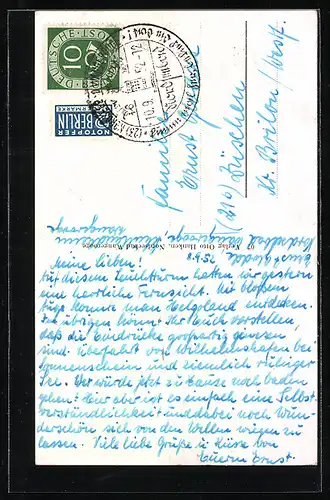 DEUTSCHE POST
10
NOTOPFER
2 BERLIN
STEUERMARKE
10.9.52-12
Familie
Ernst
(21b) Züschen
Kr. Brilon/Westf.
Verlag Otto Hanken, Nordseebad Wangerooge
Nordseebad Wangerooge,
8.9.52
Meine Lieben!
Auf diesem Leuchtturm hatten wir gestern
eine herrliche Fernsicht. Mit bloßem
Auge konnte man Helgoland entdecken.
Im übrigen könnt Ihr Euch vorstellen
daß die Eindrücke großartig gewesen
sind. Überfahrt von Wilhelmshafen bei
Sonnenschein und ziemlich ruhiger
See. Wer würde jetzt zu Hause noch baden
gehen? Hier aber ist es einfach eine Selbst-
verständlichkeit und dabei noch wun-
derschön sich von den Wellen wiegen zu
lassen. Viele liebe Grüße u. Küsse von
Euerm Ernst.